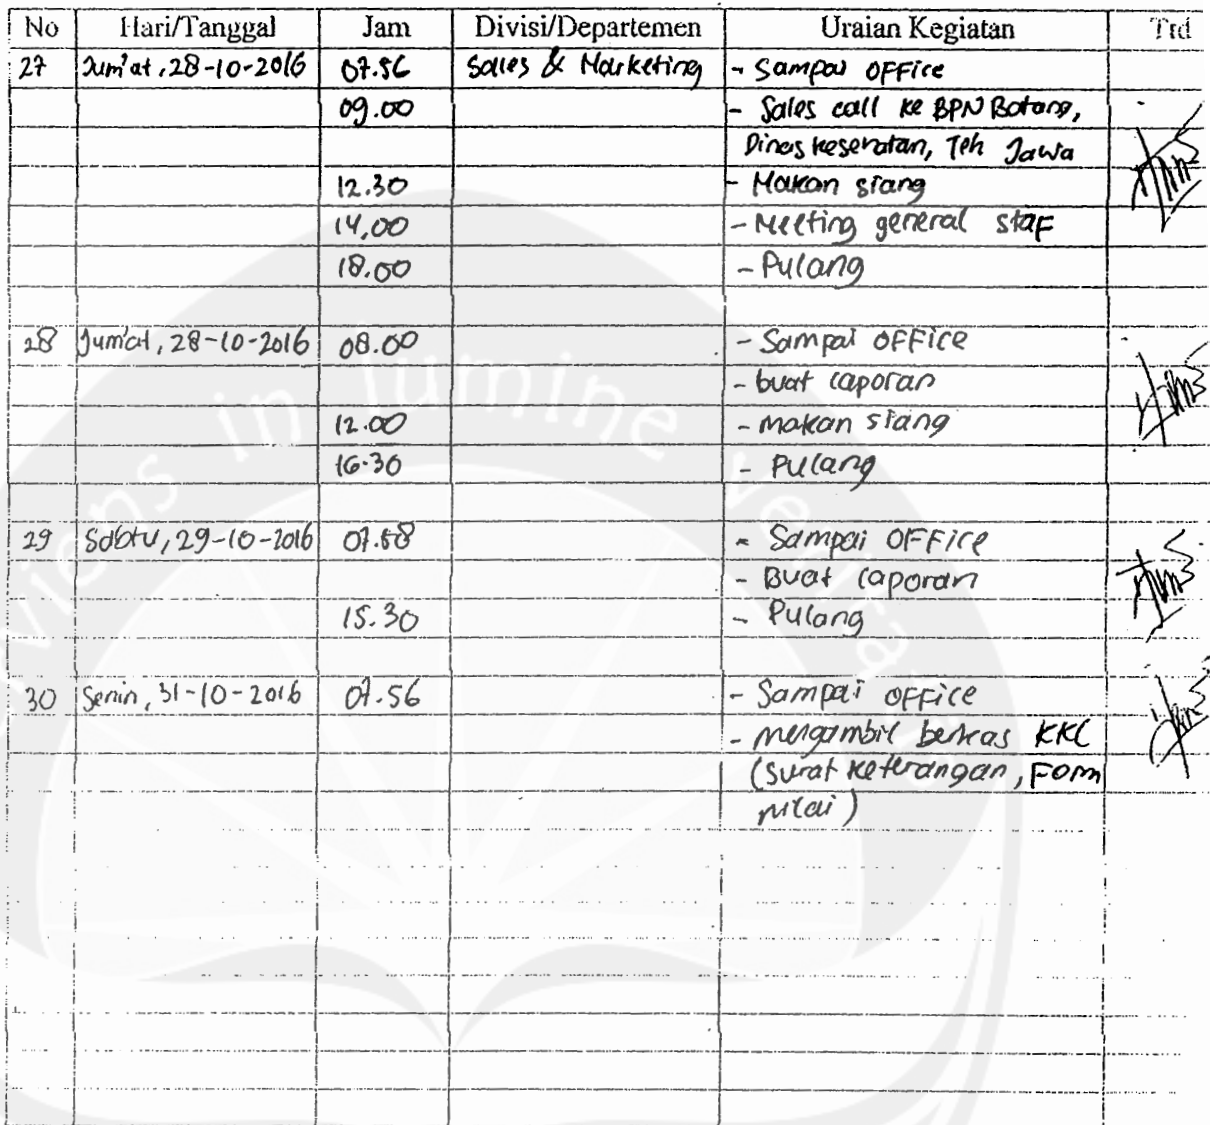 No Hari/Tanggal Jam Divisi/Departemen Uraian Kegiatan Ttd
27 Jum'at, 28-10-2016 07.56 Sales & Marketing - Sampai OFFice
09.00 - Sales call ke BPN Batang,
Dinas Kesehatan, Teh Jawa
12.30 - Makan siang
14,00 - Meeting general staF
18.00 - Pulang
28 Jum'at, 28-10-2016 08.00 - Sampai OFFice
- buat laporan
12.00 - makan siang
16.30 - Pulang
29 Sabtu, 29-10-2016 07.58 - Sampai OFFice
- Buat laporan
15.30 - Pulang
30 Senin, 31-10-2016 07.56 - Sampai OFFice
- mengambil berkas KKL
(Surat Keterangan, Form
nilai)
viens in lumine veritatis